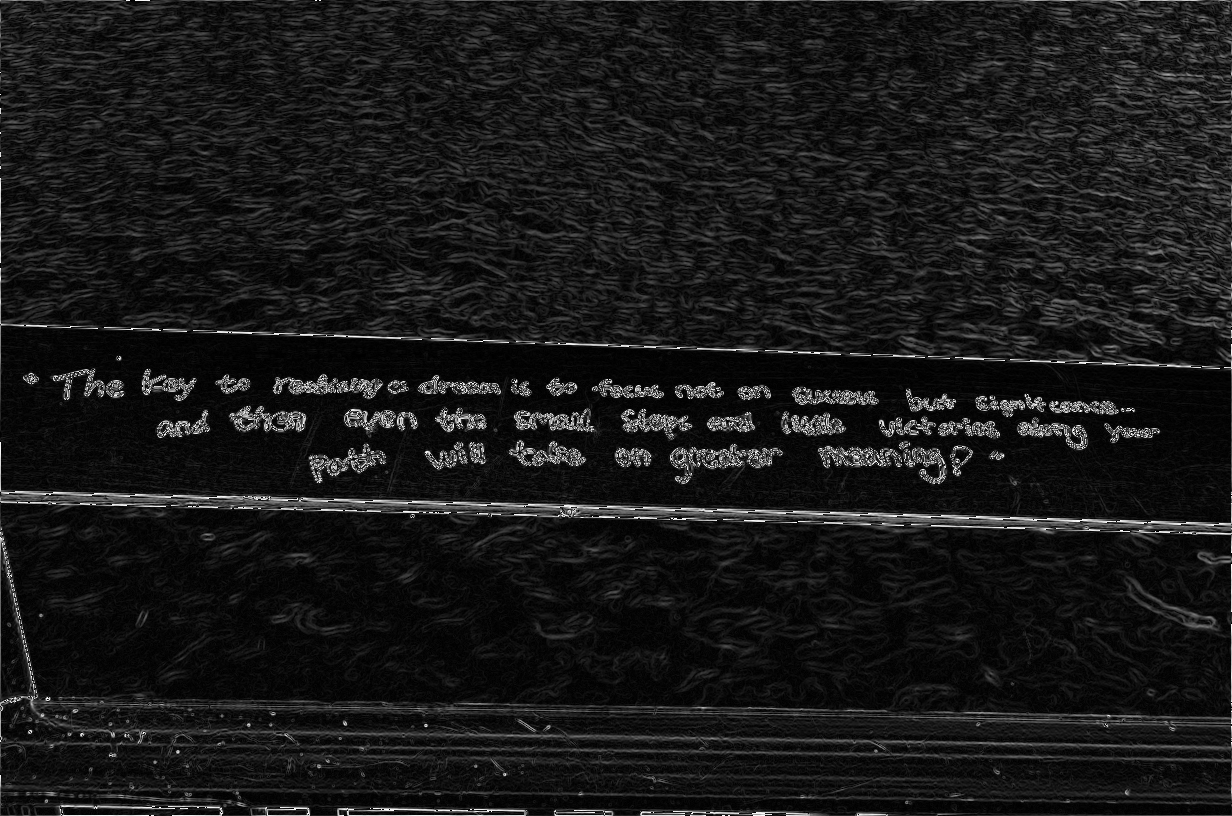 "The key to realizing a dream is to focus not on success but significance...
and then even the small steps and little victories along your
path will take on greater meaning"